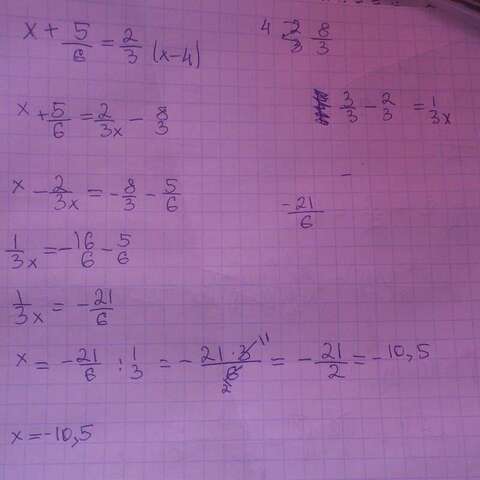 x + 5/6 = 2/3 (x-4)
4 2/3 8/3
x + 5/6 = 2/3x - 8/3
3/3 - 2/3 = 1/3x
x - 2/3x = -8/3 - 5/6
-21/6
1/3x = -16/6 - 5/6
1/3x = -21/6
x = -21/6 : 1/3 = -21·3/6 = -21/2 = -10,5
x = -10,5